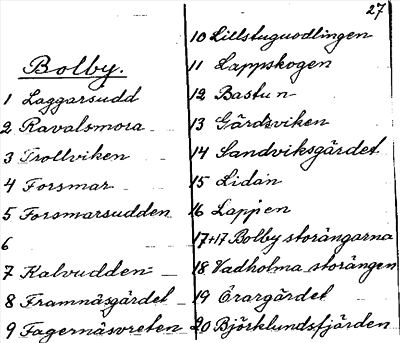 27
Bolby.
1 Laggarsudd
2 Ravalsmora
3 Trollviken
4 Forsmar
5 Forsmarsudden
6
7 Kalvudden
8 Framnäsgärdet
9 Fagernäsvreten
10 Lillstuguodlingen
11 Lappskogen
12 Bastun
13 Gärdsviken
14 Sandviksgärdet
15 Lidan
16 Lappen
17+17 Bolby storängarna
18 Vadholma storängen
19 Örargärdet
20 Björklundsfjärden